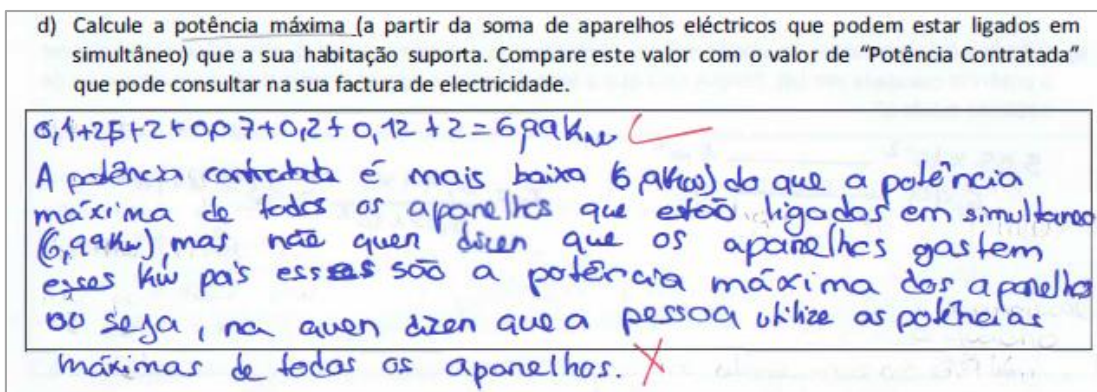 d) Calcule a potência máxima (a partir da soma de aparelhos eléctricos que podem estar ligados em
simultâneo) que a sua habitação suporta. Compare este valor com o valor de “Potência Contratada”
que pode consultar na sua factura de electricidade.
0,1+2,5+2+0,07+0,2+0,12+2=6,99Kw
A potência contratada é mais baixa (6,9Kw) do que a potência
máxima de todos os aparelhos que estão ligados em simultaneo
(6,99Kw), mas não quer dizer que os aparelhos gastem
esses Kw pois esses são a potência máxima dos aparelhos
ou seja, na quer dizer que a pessoa utilize as potências
máximas de todos os aparelhos.